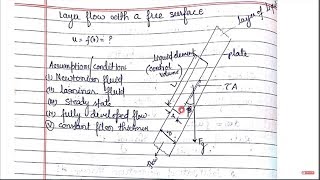 Layer flow with a free surface
u = f(x) = ?
layer of
liquid element
(control
volume)
plate
Assumption/conditions
(i) Newtonian fluid
(ii) Laminar fluid
(iii) Steady state
(iv) fully developed flow
(v) constant film thickness
τA
τA
Fg